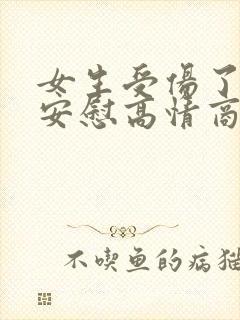 女生受傷了
安慰高情商
不喫鱼的病猫